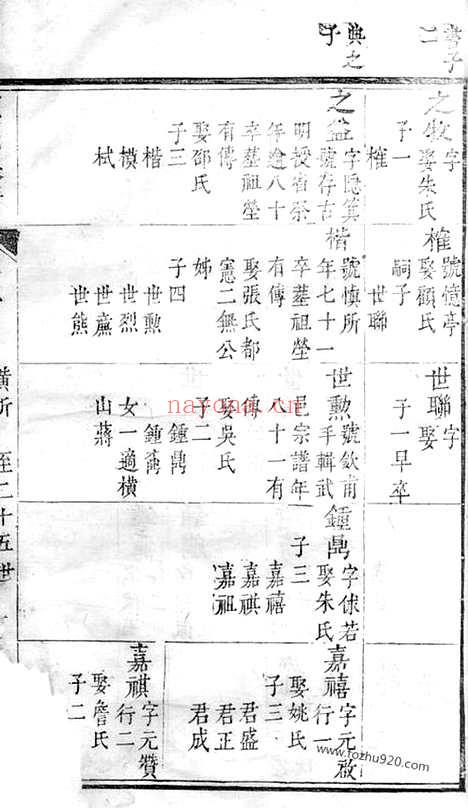 典之
子
之敏字
娶朱氏
子一
榷
之益字隱箕
號存古
明授省祭
年逾八十
卒墓祖塋
有傳
娶邵氏
子三
楷
模
栻
榷號憶亭
娶顧氏
嗣子
世聯
楷號慎所
年七十一
卒墓祖塋
有傳
娶張氏都
憲二無公
姊
子四
世勲
世烈
世廌
世熊
世聯字
娶
子一早卒
世勲號欽甫
手輯武
邑宗譜年
八十一有
傳
娶吳氏
子二
鍾鼎
鍾鼐
女一適橫
山蔣
鍾鼎字俅若
娶朱氏
子三
嘉禧
嘉祺
嘉祖
嘉禧字元啟
行一
娶姚氏
子三
君盛
君正
君成
嘉祺字元贊
行二
娶詹氏
子二
橫所
至二十五世
nayona.cn
www.fozhu920.com